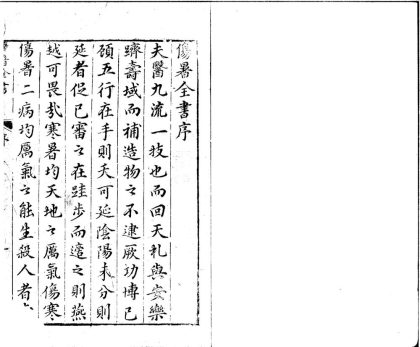 傷暑全書序
夫醫九流一技也而回天札與安樂
躋壽域而補造物之不逮厥功博已
顧五行在手則夭可延陰陽未分則
延者促已審之在跬步而遠之則燕
越可畏哉寒暑均天地之厲氣傷寒
傷暑二病均厲氣之能生殺人者